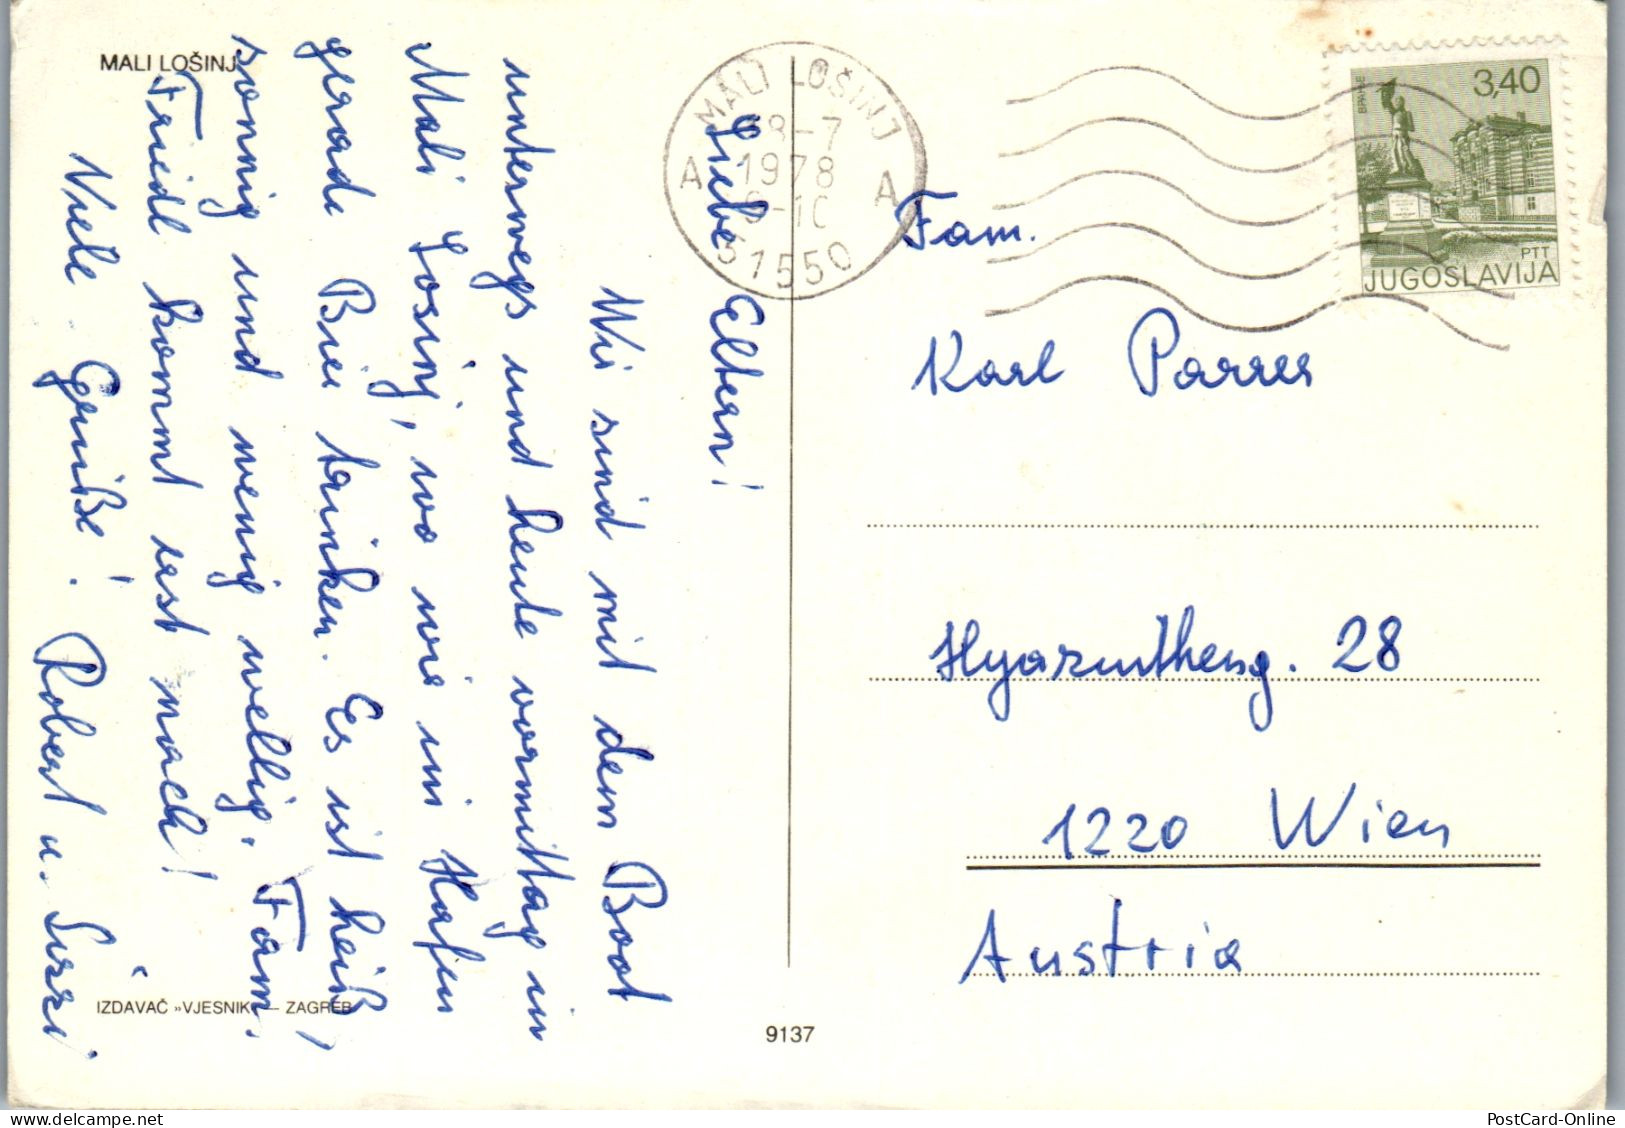 MALI LOŠINJ
Liebe Eltern!
Wir sind mit dem Boot
unterwegs und heute vormittag in
Mali Losinj, wo wir im Hafen
gerade Bier trinken. Es ist heiß,
sonnig und wenig wellig. Fam.
Friedl kommt erst nach!
Viele Grüße! Robert u. Susi
IZDAVAČ »VJESNIK« — ZAGREB
9137
MALI LOŠINJ
28-7
1978
9-10
A A
51550
BRANE
3,40
PTT
JUGOSLAVIJA
Fam.
Karl Parrer
Hyazintheng. 28
1220 Wien
Austria
PostCard-Online